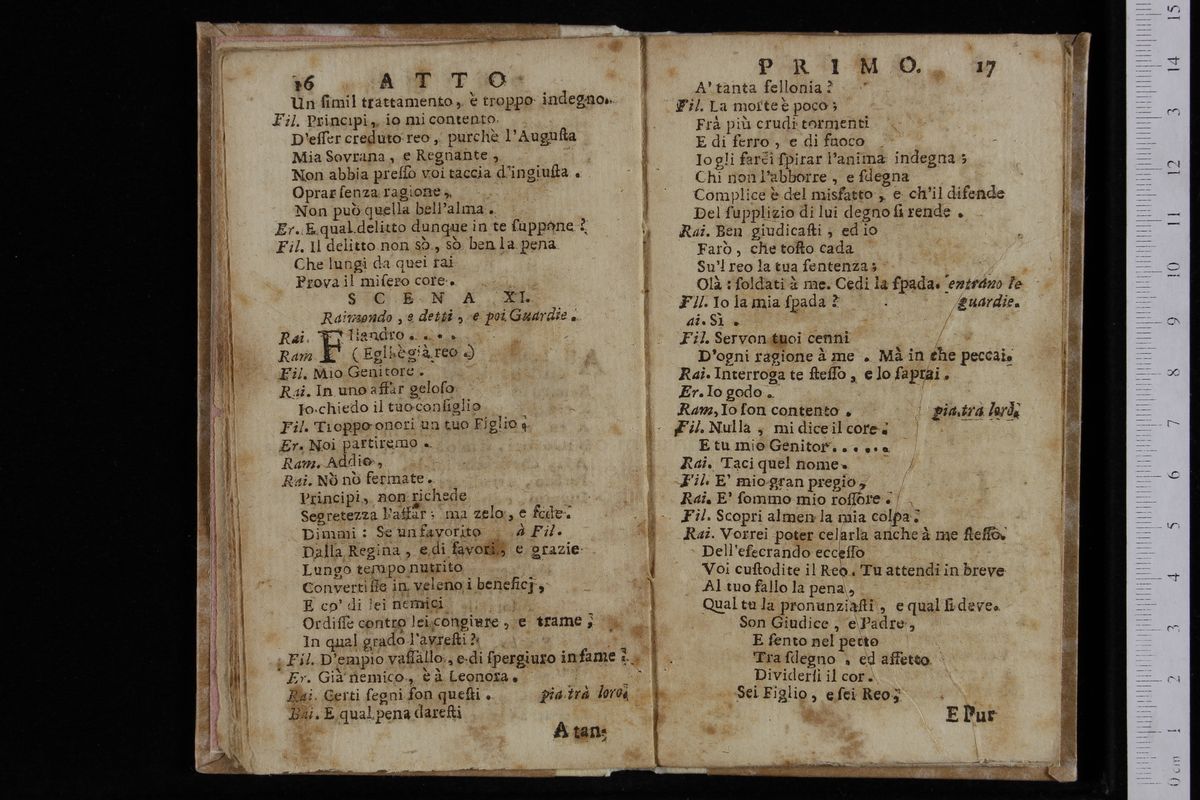 16 ATTO
Un ſimil trattamento, è troppo indegno.
Fil. Principi, io mi contento
D'eſſer creduto reo, purchè l'Auguſta
Mia Sovrana, e Regnante,
Non abbia preſſo voi taccia d'ingiuſta.
Oprar ſenza ragione,
Non può quella bell'alma.
Er. E qual delitto dunque in te ſuppone?
Fil. Il delitto non sò, sò ben la pena
Che lungi da quei rai
Prova il miſero core.
SCENA XI.
Raimondo, e detti, e poi Guardie.
Rai. Filiandro....
Ram (Egli è già reo.)
Fil. Mio Genitore.
Rai. In uno affar geloſo
Io chiedo il tuo conſiglio
Fil. Troppo onori un tuo Figlio;
Er. Noi partiremo.
Ram. Addio,
Rai. Nò nò fermate.
Principi, non richede
Segretezza l'affar; ma zelo, e fede.
Dimmi: Se un favorito à Fil.
Dalla Regina, e di favori, e grazie
Lungo tempo nutrito
Convertiſſe in veleno i beneficj,
E co' di lei nemici
Ordiſſe contro lei congiure, e trame;
In qual grado l'avreſti?
Fil. D'empio vaſſallo, e di ſpergiuro infame?
Er. Già nemico, è à Leonora.
Rai. Certi ſegni ſon queſti. pia trà loro.
Rai. E qual pena dareſti
A tan-
PRIMO. 17
A' tanta fellonia?
Fil. La morte è poco;
Frà più crudi tormenti
E di ferro, e di fuoco
Io gli farei ſpirar l'anima indegna;
Chi non l'abborre, e ſdegna
Complice è del misfatto, e ch'il difende
Del ſupplizio di lui degno ſi rende.
Rai. Ben giudicaſti, ed io
Farò, che toſto cada
Su'l reo la tua ſentenza;
Olà: ſoldati à me. Cedi la ſpada. entrano le
Fll. Io la mia ſpada? guardie.
ai. Sì.
Fil. Servon tuoi cenni
D'ogni ragione à me. Mà in che peccai.
Rai. Interroga te ſteſſo, e lo ſaprai.
Er. Io godo.
Ram, Io ſon contento. pia trà loro.
Fil. Nulla, mi dice il core.
E tu mio Genitor......
Rai. Taci quel nome.
Fil. E' mio gran pregio,
Rai. E' ſommo mio roſſore.
Fil. Scopri almen la mia colpa.
Rai. Vorrei poter celarla anche à me ſteſſo.
Dell'eſecrando ecceſſo
Voi cuſtodite il Reo. Tu attendi in breve
Al tuo fallo la pena,
Qual tu la pronunziaſti, e qual ſi deve.
Son Giudice, e Padre,
E ſento nel petto
Tra ſdegno, ed affetto
Dividerſi il cor.
Sei Figlio, e ſei Reo;
E Pur
15
14
13
12
11
10
9
8
7
6
5
4
3
2
1
0 cm